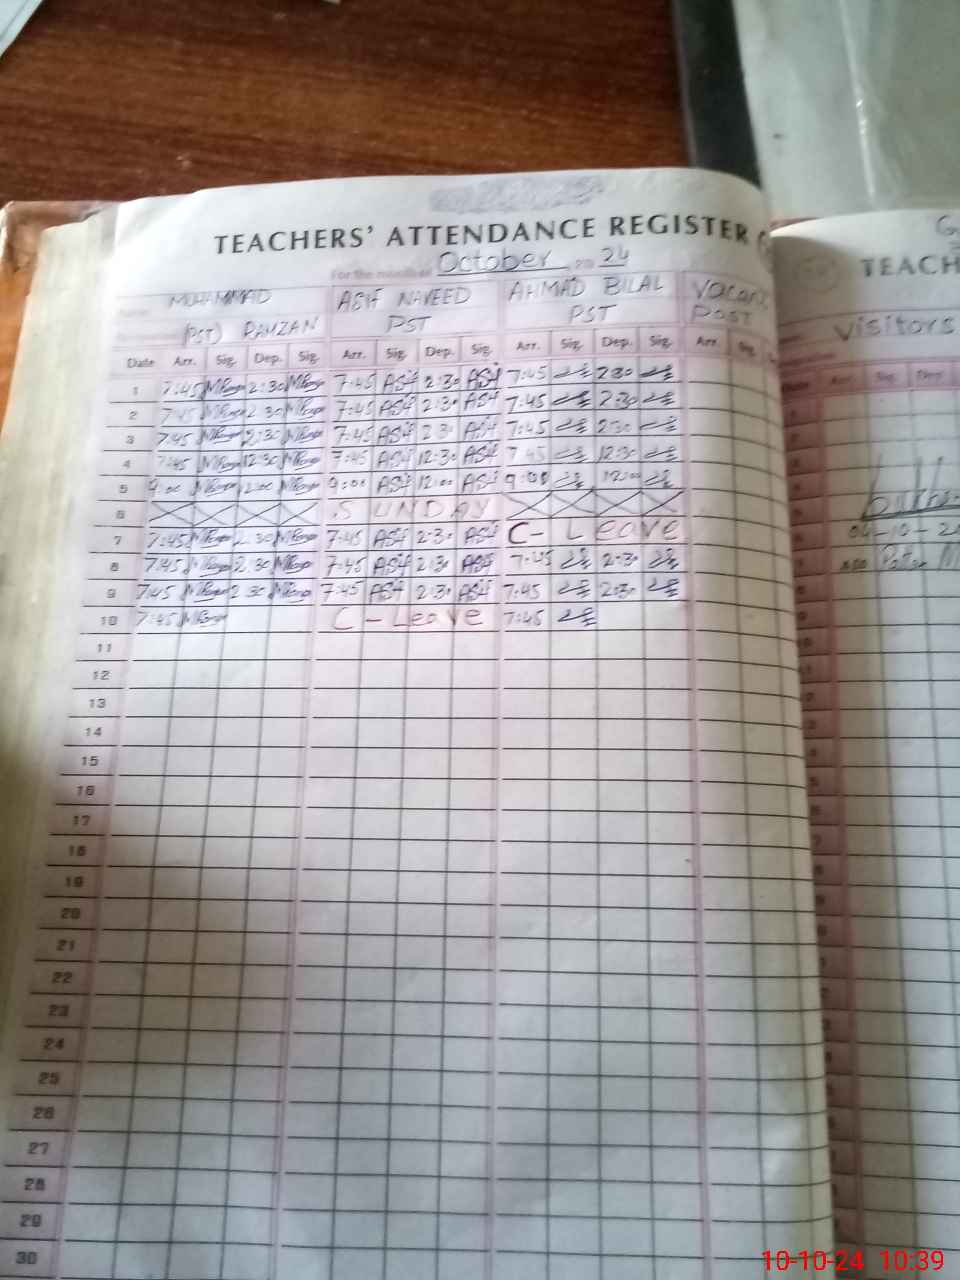 TEACHERS' ATTENDANCE REGISTER
For the month of October 2024
MUHAMMAD ASIF NAVEED AHMAD BILAL Vacant
(PST) RAMZAN PST PST Post
Date Arr. Sig. Dep. Sig. Arr. Sig. Dep. Sig. Arr. Sig. Dep. Sig. Arr. Sig.
1 7:45 2:30 7:45 Asif 2:30 Asif 7:45 2:30
2 7:45 2:30 7:45 Asif 2:30 Asif 7:45 2:30
3 7:45 2:30 7:45 Asif 2:30 Asif 7:45 2:30
4 7:45 12:30 7:45 Asif 12:30 Asif 7:45 12:30
5 9:00 12:00 9:00 Asif 12:00 Asif 9:00 12:00
6 SUNDAY
7 7:45 2:30 7:45 Asif 2:30 Asif C- Leave
8 7:45 2:30 7:45 Asif 2:30 Asif 7:45 2:30
9 7:45 2:30 7:45 Asif 2:30 Asif 7:45 2:30
10 7:45 C-Leave 7:45
11
12
13
14
15
16
17
18
19
20
21
22
23
24
25
26
27
28
29
30
TEACH
Visitors
04-10-2
10-10-24 10:39